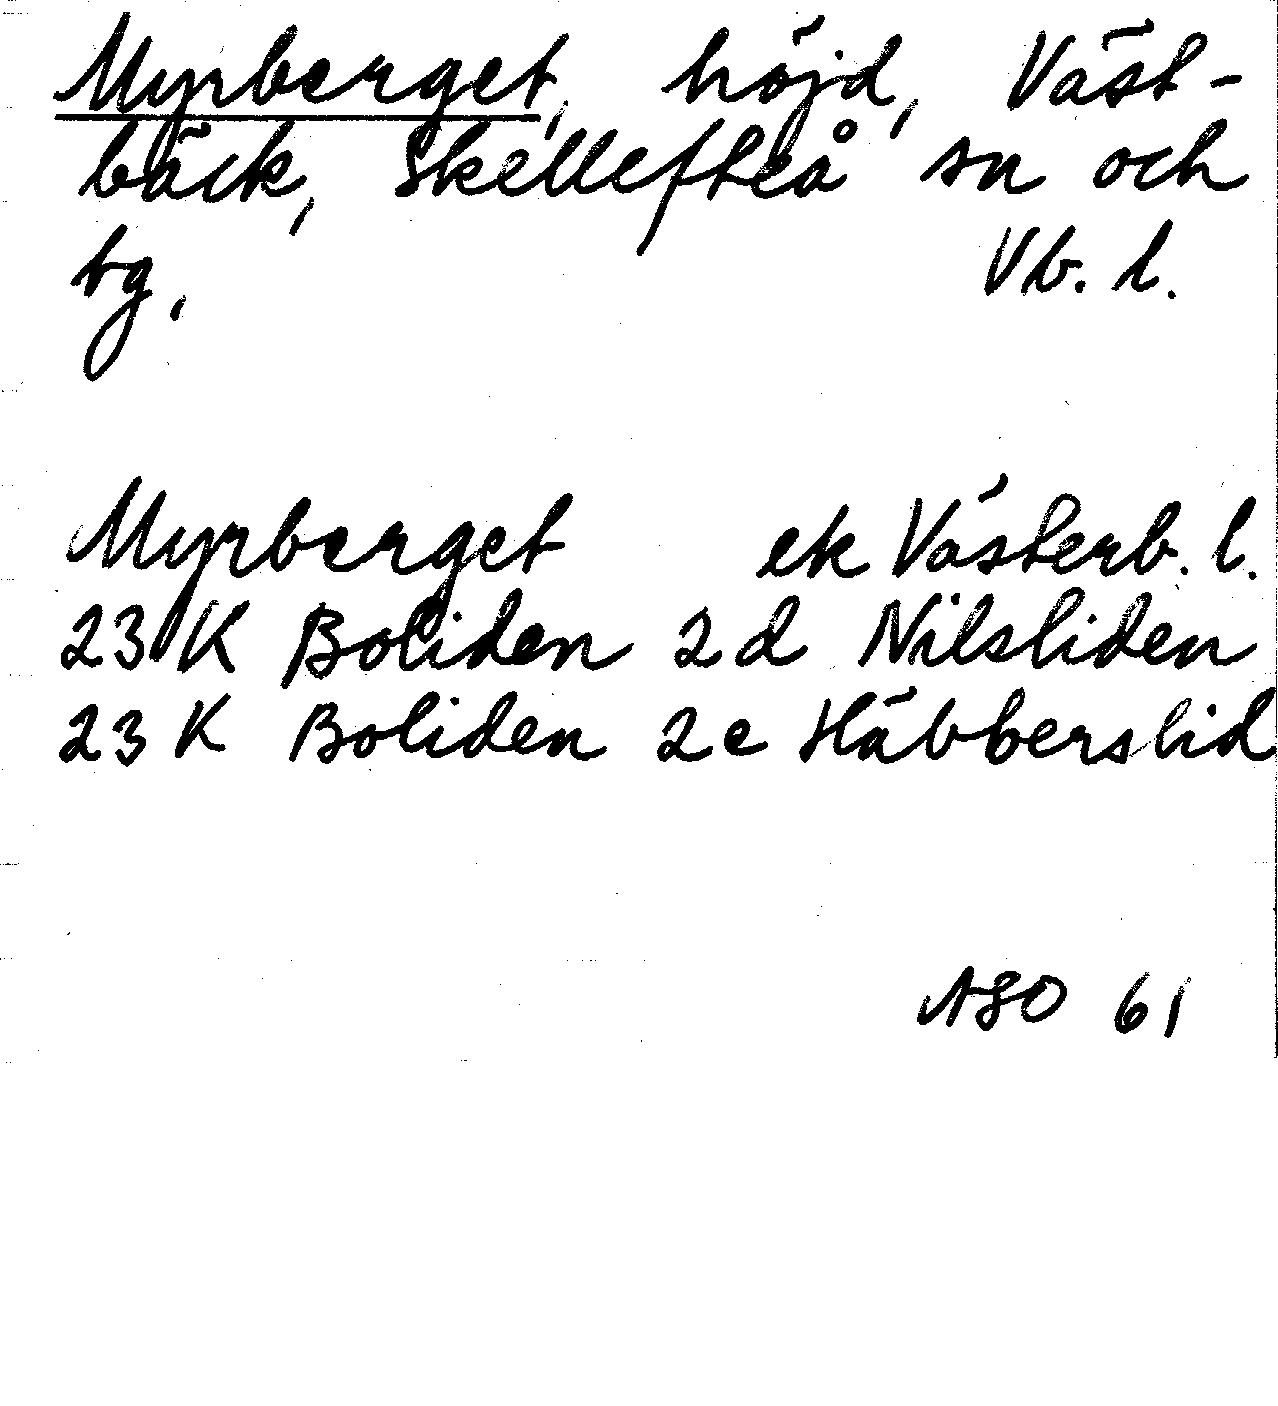 Myrberget, höjd, Väst-
bäck, Skellefteå sn och
tg, Vb. l.
Myrberget ek Västerb. l.
23 K Boliden 2d Nilsliden
23 K Boliden 2e Häbberslid
ASO 61